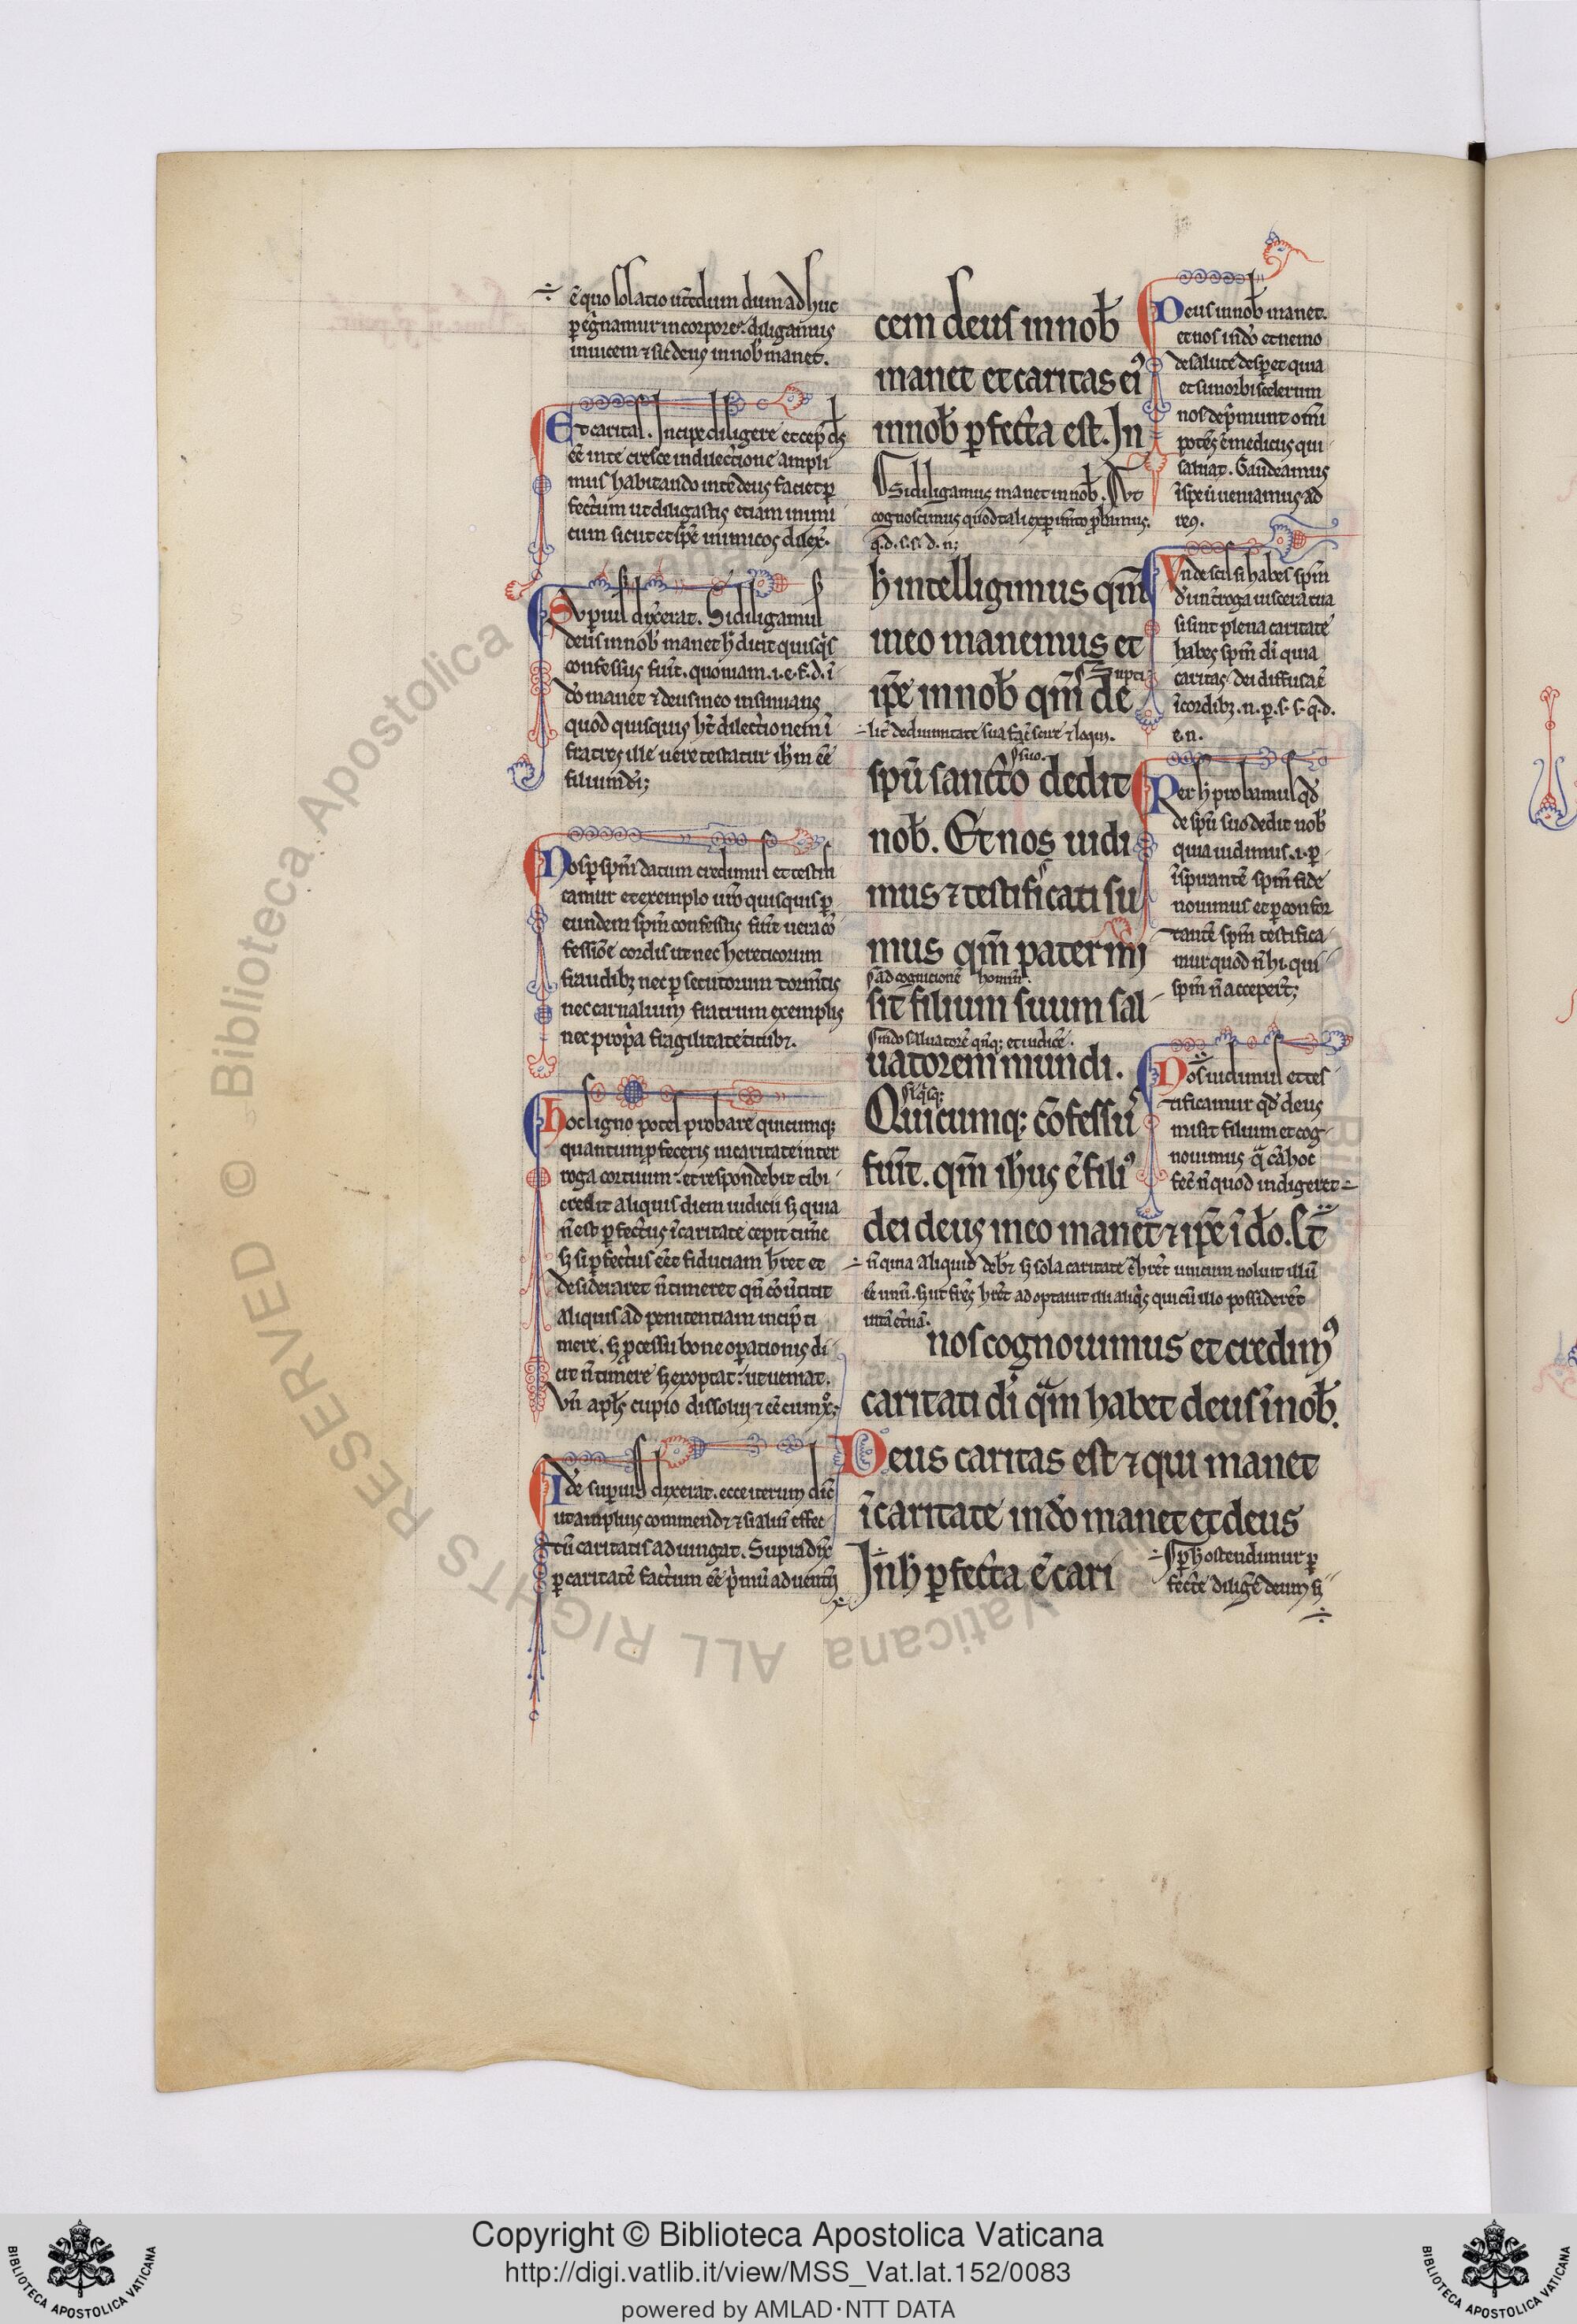 ē quo solatio utēdum dum adhuc
ꝑegͥnamur in corpore. diligamus
inuicem ⁊ sic deus in nob̄ manet.
Et caritas. Incipe diligere et cepͥt ds̄
eē in te cresce in dilectione ampli
mus habitando in te deus faciet ꝑ
fectum ut diligatis etiam inimi
cum sicut et ip̄e inimicos dilex̄.
Suꝑius dix̄erat. Si diligamus
deus in nob̄ manet h̄ dicit quisqͥs
confessus fuīt. quoniam .i. e. f. d. ī
dō manet ⁊ deus in eo insinuans
quod quisquis ht̄ dilectionem ī
fratres ille uere testatur ih̄m eē
filium dī;
Nos ꝑ spm̄ datum credimus et testifi
camur et exemplo nr̄o quisquis ꝑ
eundem spm̄ confessus fuīt uera cō
fessiōe cordis ut nec hereticorum
fraudibꝫ nec ꝑsecutorum tormtīs
nec carnalium fratrum exemplis
nec propͥa fragilitate titubꝫ.
Hoc signo potes probare quicumqꝫ
quantum ꝓfeceris in caritate inter
roga cor tuum: et respondebit tibi
credit aliquis diem iudicii sꝫ quia
n̄ est ꝑfectus ī caritate cepit timē
sꝫ si ꝑfectus eēt fiduciam hr̄et et
desideraret n̄ timeret qn̄ cōūtitit
aliquis ad penitentiam incipͥt ti
mere. sꝫ ꝓcessu bone oꝑationis di
cit n̄ timere sꝫ exoptat: ut ueniat.
Vn̄ apłs cupio dissolui ⁊ eē cum xͦ;
Idē suꝑius dixerat. ecce iterum dic̄
ut amplius commendꝫ ⁊ alium effec
tū caritatis adiungat. Supra dix̄
ꝑ caritatē factum eē pͥmū aduentū
cem deus in nob̄
manet et caritas eiꝰ
in nob̄ ꝑfecta est. In
Si diligamus manet in nob̄. Aut
cognoscimus quod tali exꝑimto ꝓbamus.
q. d. s. s. d. n;
h̄ intelligimus qm̄
in eo manemus et
ip̄e in nob̄ qm̄ de
lic̄ de diuinitate sua faꝫ scire ⁊ loqui.
s. suo.
spū sancto dedit
nob̄. Et nos uidi
mus ⁊ testificati su
mus qm̄ pater mi
s. ad cognitionē hominū.
sit filium suum sal
s. mō saluatorē qn̄qꝫ et iudicē.
uatorem mundi.
siqͥsqꝫ
Quicumqꝫ cōfessuſ
fuīt. qm̄ ih̄us ē filiꝰ
dei deus in eo manet ⁊ ip̄e ī dō. Et
n̄ quia aliquid debꝫ sꝫ sola caritate hr̄et unicum noluit illū
eē unū. sꝫ ut fr̄es hr̄et adoptauit illi aliqͥs qui cū illo possiderēt
uitā etnā.
nos cognouimus et credimꝰ
caritati dī qͣm habet deus ī nob̄.
Deus caritas est ⁊ qui manet
ī caritate in dō manet et deus
In h̄ ꝑfecta ē cari
Deus in nob̄ manet.
et nos in dō et nemo
de salute desꝑet quia
et si morbi scelerum
nos depͥmunt omī
potēs ē medicus qui
sanat. Gaudeamus
ī spe ū ueniamus ad
rē.
Vnde scis si habes spm̄
dī interroga uiscera tua
si sint plena caritate
habes spm̄ dī quia
caritas dei diffusa ē
ī cordibꝫ. n. ꝑ. s. s. q. d.
e. n.
Per h̄ probamus qd̄
de spū suo dedit nob̄
quia uidimus .i. ꝑ
īspirantē spm̄ fide
nouimus et ꝑ confor
tantē spm̄ testifica
mur quod n̄ hn̄t qui
spm̄ n̄ acceꝑt;
Nos uidimus et tes
tificamur qd̄ deus
misit filium et cog
nouimus qͣ cā hoc
fec̄ n̄ quod indigeret
s. ꝑ h̄ ostendimur ꝑ
fecte diligē deum si
Copyright © Biblioteca Apostolica Vaticana
http://digi.vatlib.it/view/MSS_Vat.lat.152/0083
powered by AMLAD·NTT DATA
BIBLIOTECA APOSTOLICA VATICANA
BIBLIOTECA APOSTOLICA VATICANA
© Biblioteca Apostolica Vaticana ALL RIGHTS RESERVED